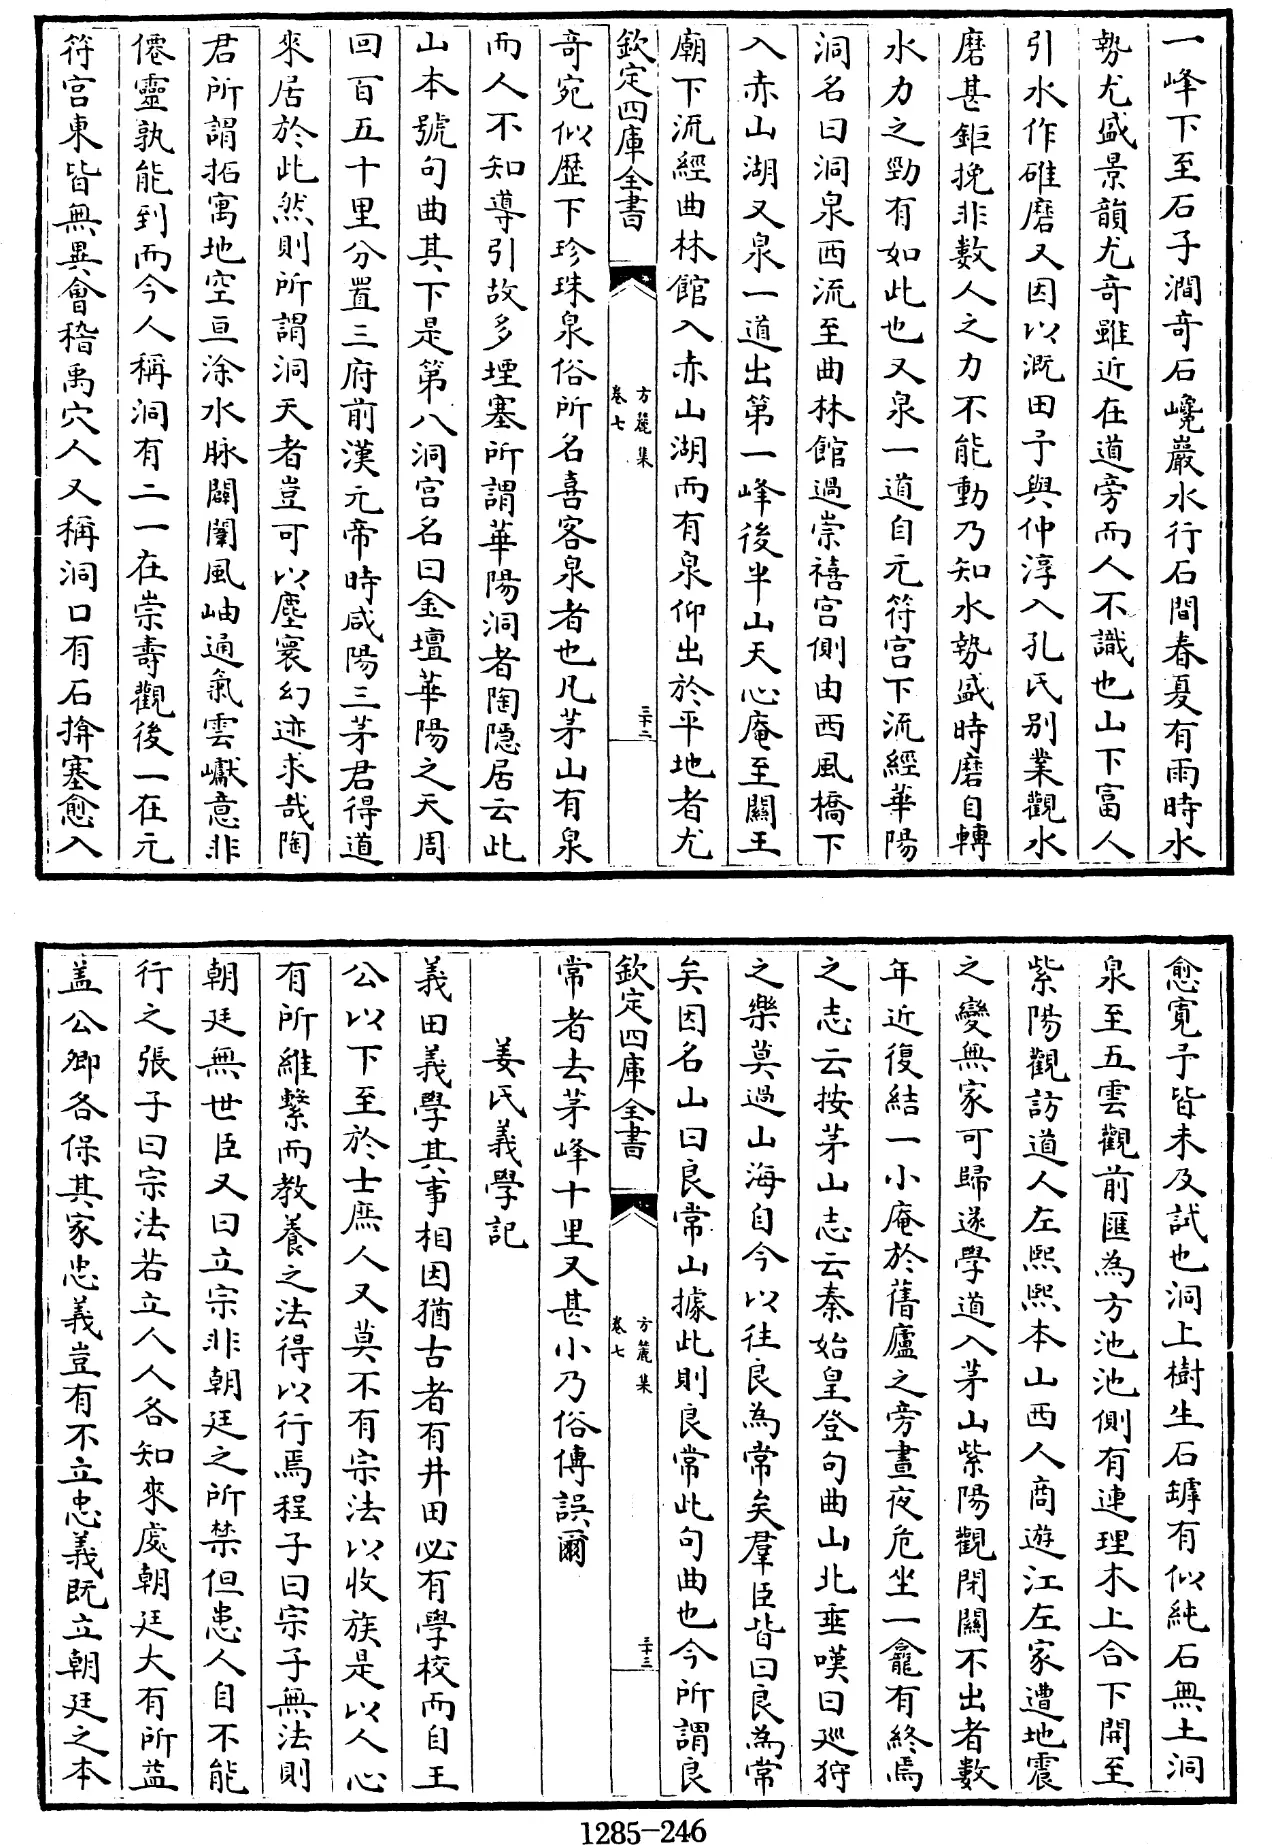 一峰下至石子澗奇石巉巖水行石間春夏有雨時水
勢尤盛景韻尤奇雖近在道旁而人不識也山下富人
引水作碓磨又因以溉田予與仲淳入孔氏别業觀水
磨甚鉅挽非數人之力不能動乃知水勢盛時磨自轉
水力之勁有如此也又泉一道自元符宫下流經華陽
洞名曰洞泉西流至曲林館過崇禧宫側由西風橋下
入赤山湖又泉一道出第一峰後半山天心庵至關王
廟下流經曲林館入赤山湖而有泉仰出於平地者尤
欽定四庫全書
方麓集
卷七
三十二
奇宛似歷下珍珠泉俗所名喜客泉者也凡茅山有泉
而人不知導引故多堙塞所謂華陽洞者陶隱居云此
山本號句曲其下是第八洞宫名曰金壇華陽之天周
回百五十里分置三府前漢元帝時咸陽三茅君得道
來居於此然則所謂洞天者豈可以塵寰幻迹求哉陶
君所謂拓寓地空亘涂水脉闢闈風岫通氣雲巘意非
僊靈孰能到而今人稱洞有二一在崇壽觀後一在元
符宫東皆無異會稽禹穴人又稱洞口有石揜塞愈入
愈寛予皆未及試也洞上樹生石罅有似純石無土洞
泉至五雲觀前匯為方池池側有連理木上合下開至
紫陽觀訪道人左熙熙本山西人商遊江左家遭地震
之變無家可歸遂學道入茅山紫陽觀閉關不出者數
年近復結一小庵於舊廬之旁晝夜危坐一龕有終焉
之志云按茅山志云秦始皇登句曲山北垂嘆曰廵狩
之樂莫過山海自今以往良為常矣羣臣皆曰良為常
矣因名山曰良常山據此則良常此句曲也今所謂良
欽定四庫全書
方麓集
卷七
三十三
常者去茅峰十里又甚小乃俗傳誤爾
姜氏義學記
義田義學其事相因猶古者有井田必有學校而自王
公以下至於士庶人又莫不有宗法以收族是以人心
有所維繫而教養之法得以行焉程子曰宗子無法則
朝廷無世臣又曰立宗非朝廷之所禁但患人自不能
行之張子曰宗法若立人人各知來處朝廷大有所益
盖公卿各保其家忠義豈有不立忠義既立朝廷之本
1285-246